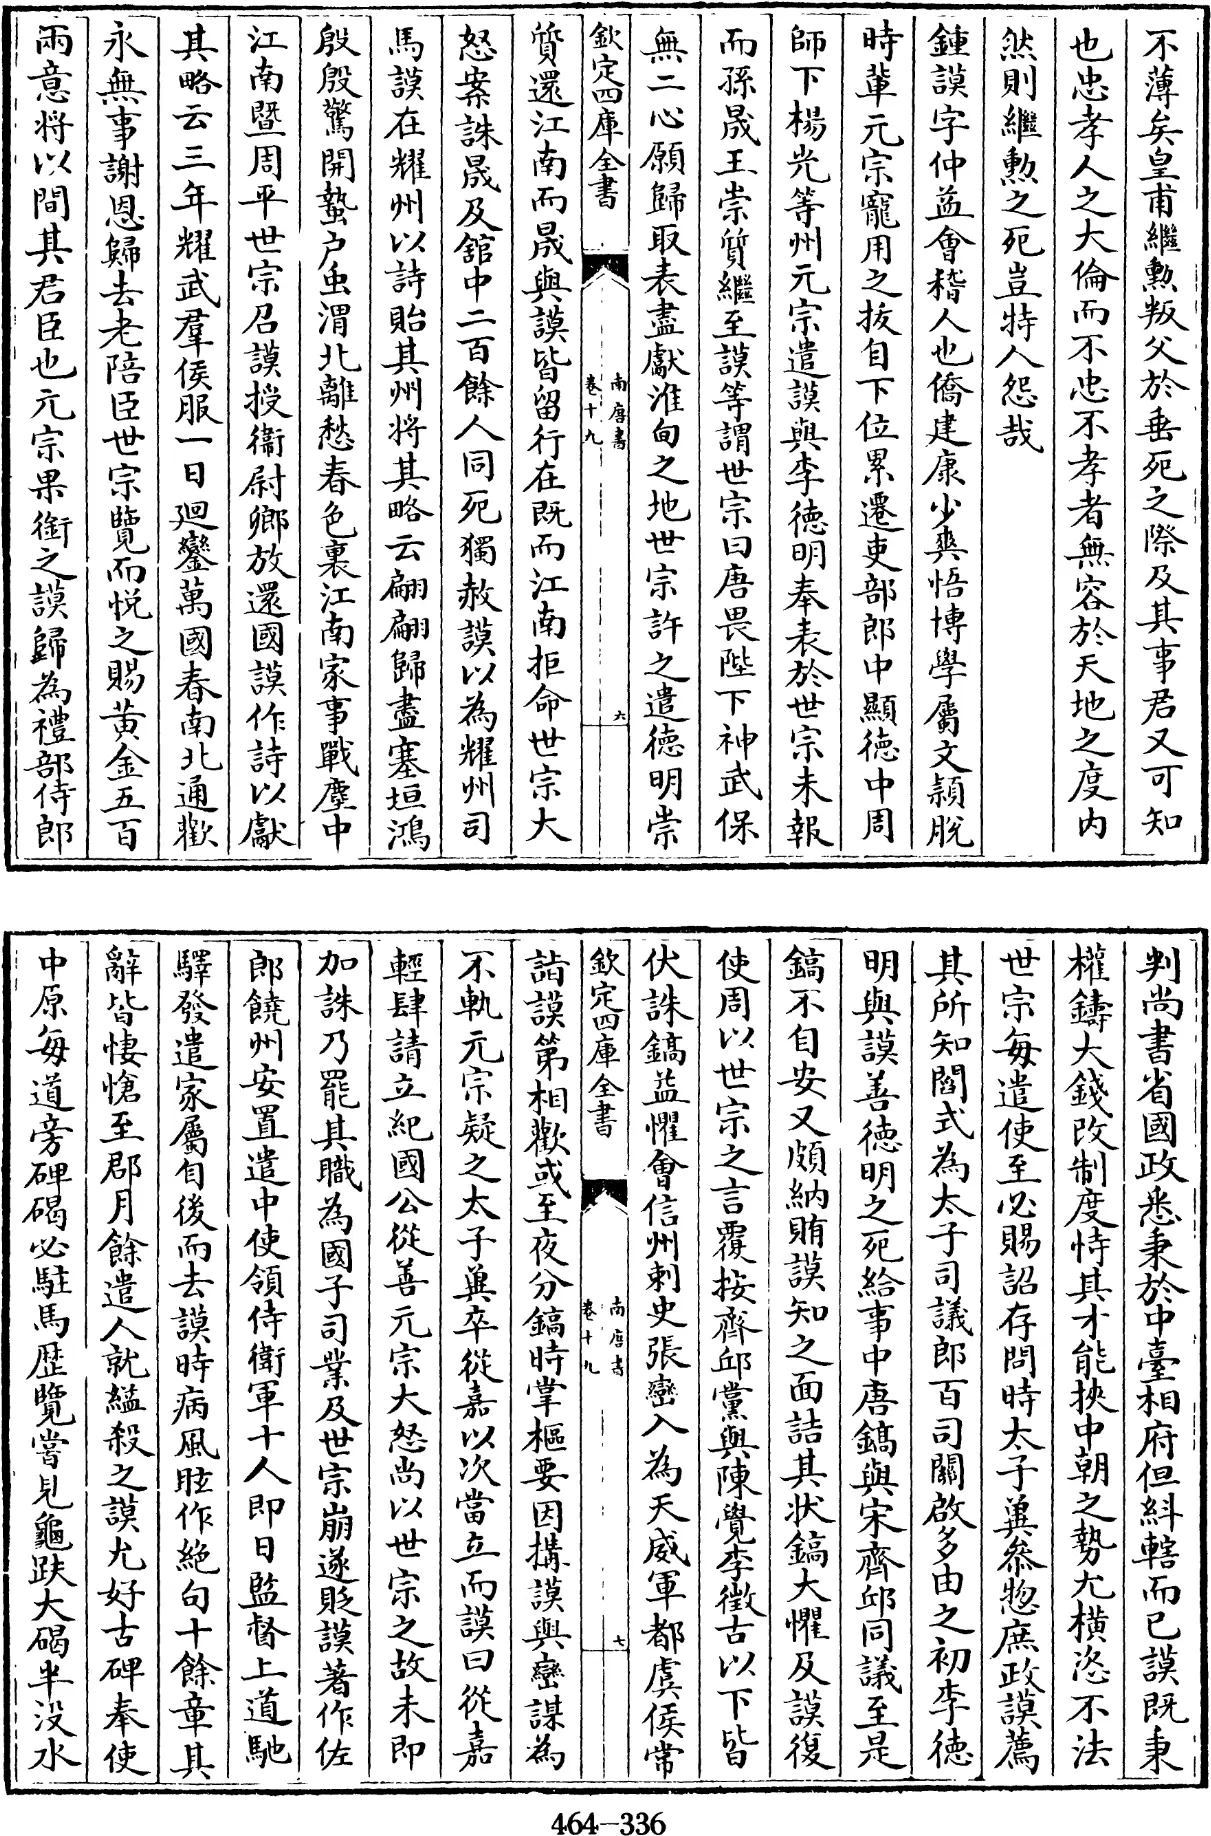 不薄矣皇甫繼勲叛父於垂死之際及其事君又可知
也忠孝人之大倫而不忠不孝者無容於天地之度内
然則繼勲之死豈特人怨哉
鍾謨字仲益會稽人也僑建康少爽悟博學屬文頴脫
時輩元宗寵用之拔自下位累遷吏部郎中顯徳中周
師下楊光等州元宗遣謨與李徳明奉表於世宗未報
而孫晟王崇質繼至謨等謂世宗曰唐畏陛下神武保
無二心願歸取表盡獻淮甸之地世宗許之遣徳明崇
欽定四庫全書
南唐書
卷十九
六
質還江南而晟與謨皆留行在既而江南拒命世宗大
怒案誅晟及舘中二百餘人同死獨赦謨以為耀州司
馬謨在耀州以詩貽其州將其略云翩翩歸盡塞垣鴻
殷殷驚開蟄户䖝渭北離愁春色裏江南家事戰塵中
江南曁周平世宗召謨授衛尉卿放還國謨作詩以獻
其略云三年耀武羣侯服一日廻鑾萬國春南北通歡
永無事謝恩歸去老陪臣世宗覽而悦之賜黄金五百
兩意將以間其君臣也元宗果銜之謨歸為禮部侍郎
判尚書省國政悉秉於中臺相府但糾轄而已謨既秉
權鑄大錢改制度恃其才能挾中朝之勢尤横恣不法
世宗每遣使至必賜詔存問時太子兾叅惣庶政謨薦
其所知閻式為太子司議郎百司關啟多由之初李徳
明與謨善徳明之死給事中唐鎬與宋齊邱同議至是
鎬不自安又頗納賄謨知之面詰其狀鎬大懼及謨復
使周以世宗之言覆按齊邱黨與陳覺李徵古以下皆
伏誅鎬益懼會信州刺史張巒入為天威軍都虞侯常
欽定四庫全書
南唐書
卷十九
七
詣謨第相歡或至夜分鎬時掌樞要因搆謨與巒謀為
不軌元宗疑之太子兾卒從嘉以次當立而謨曰從嘉
輕肆請立紀國公從善元宗大怒尚以世宗之故未即
加誅乃罷其職為國子司業及世宗崩遂貶謨著作佐
郎饒州安置遣中使領侍衛軍十人即日監督上道馳
驛發遣家屬自後而去謨時病風眩作絶句十餘章其
辭皆悽愴至郡月餘遣人就縊殺之謨尤好古碑奉使
中原每道旁碑碣必駐馬歴覽嘗見龜趺大碣半没水
464-336